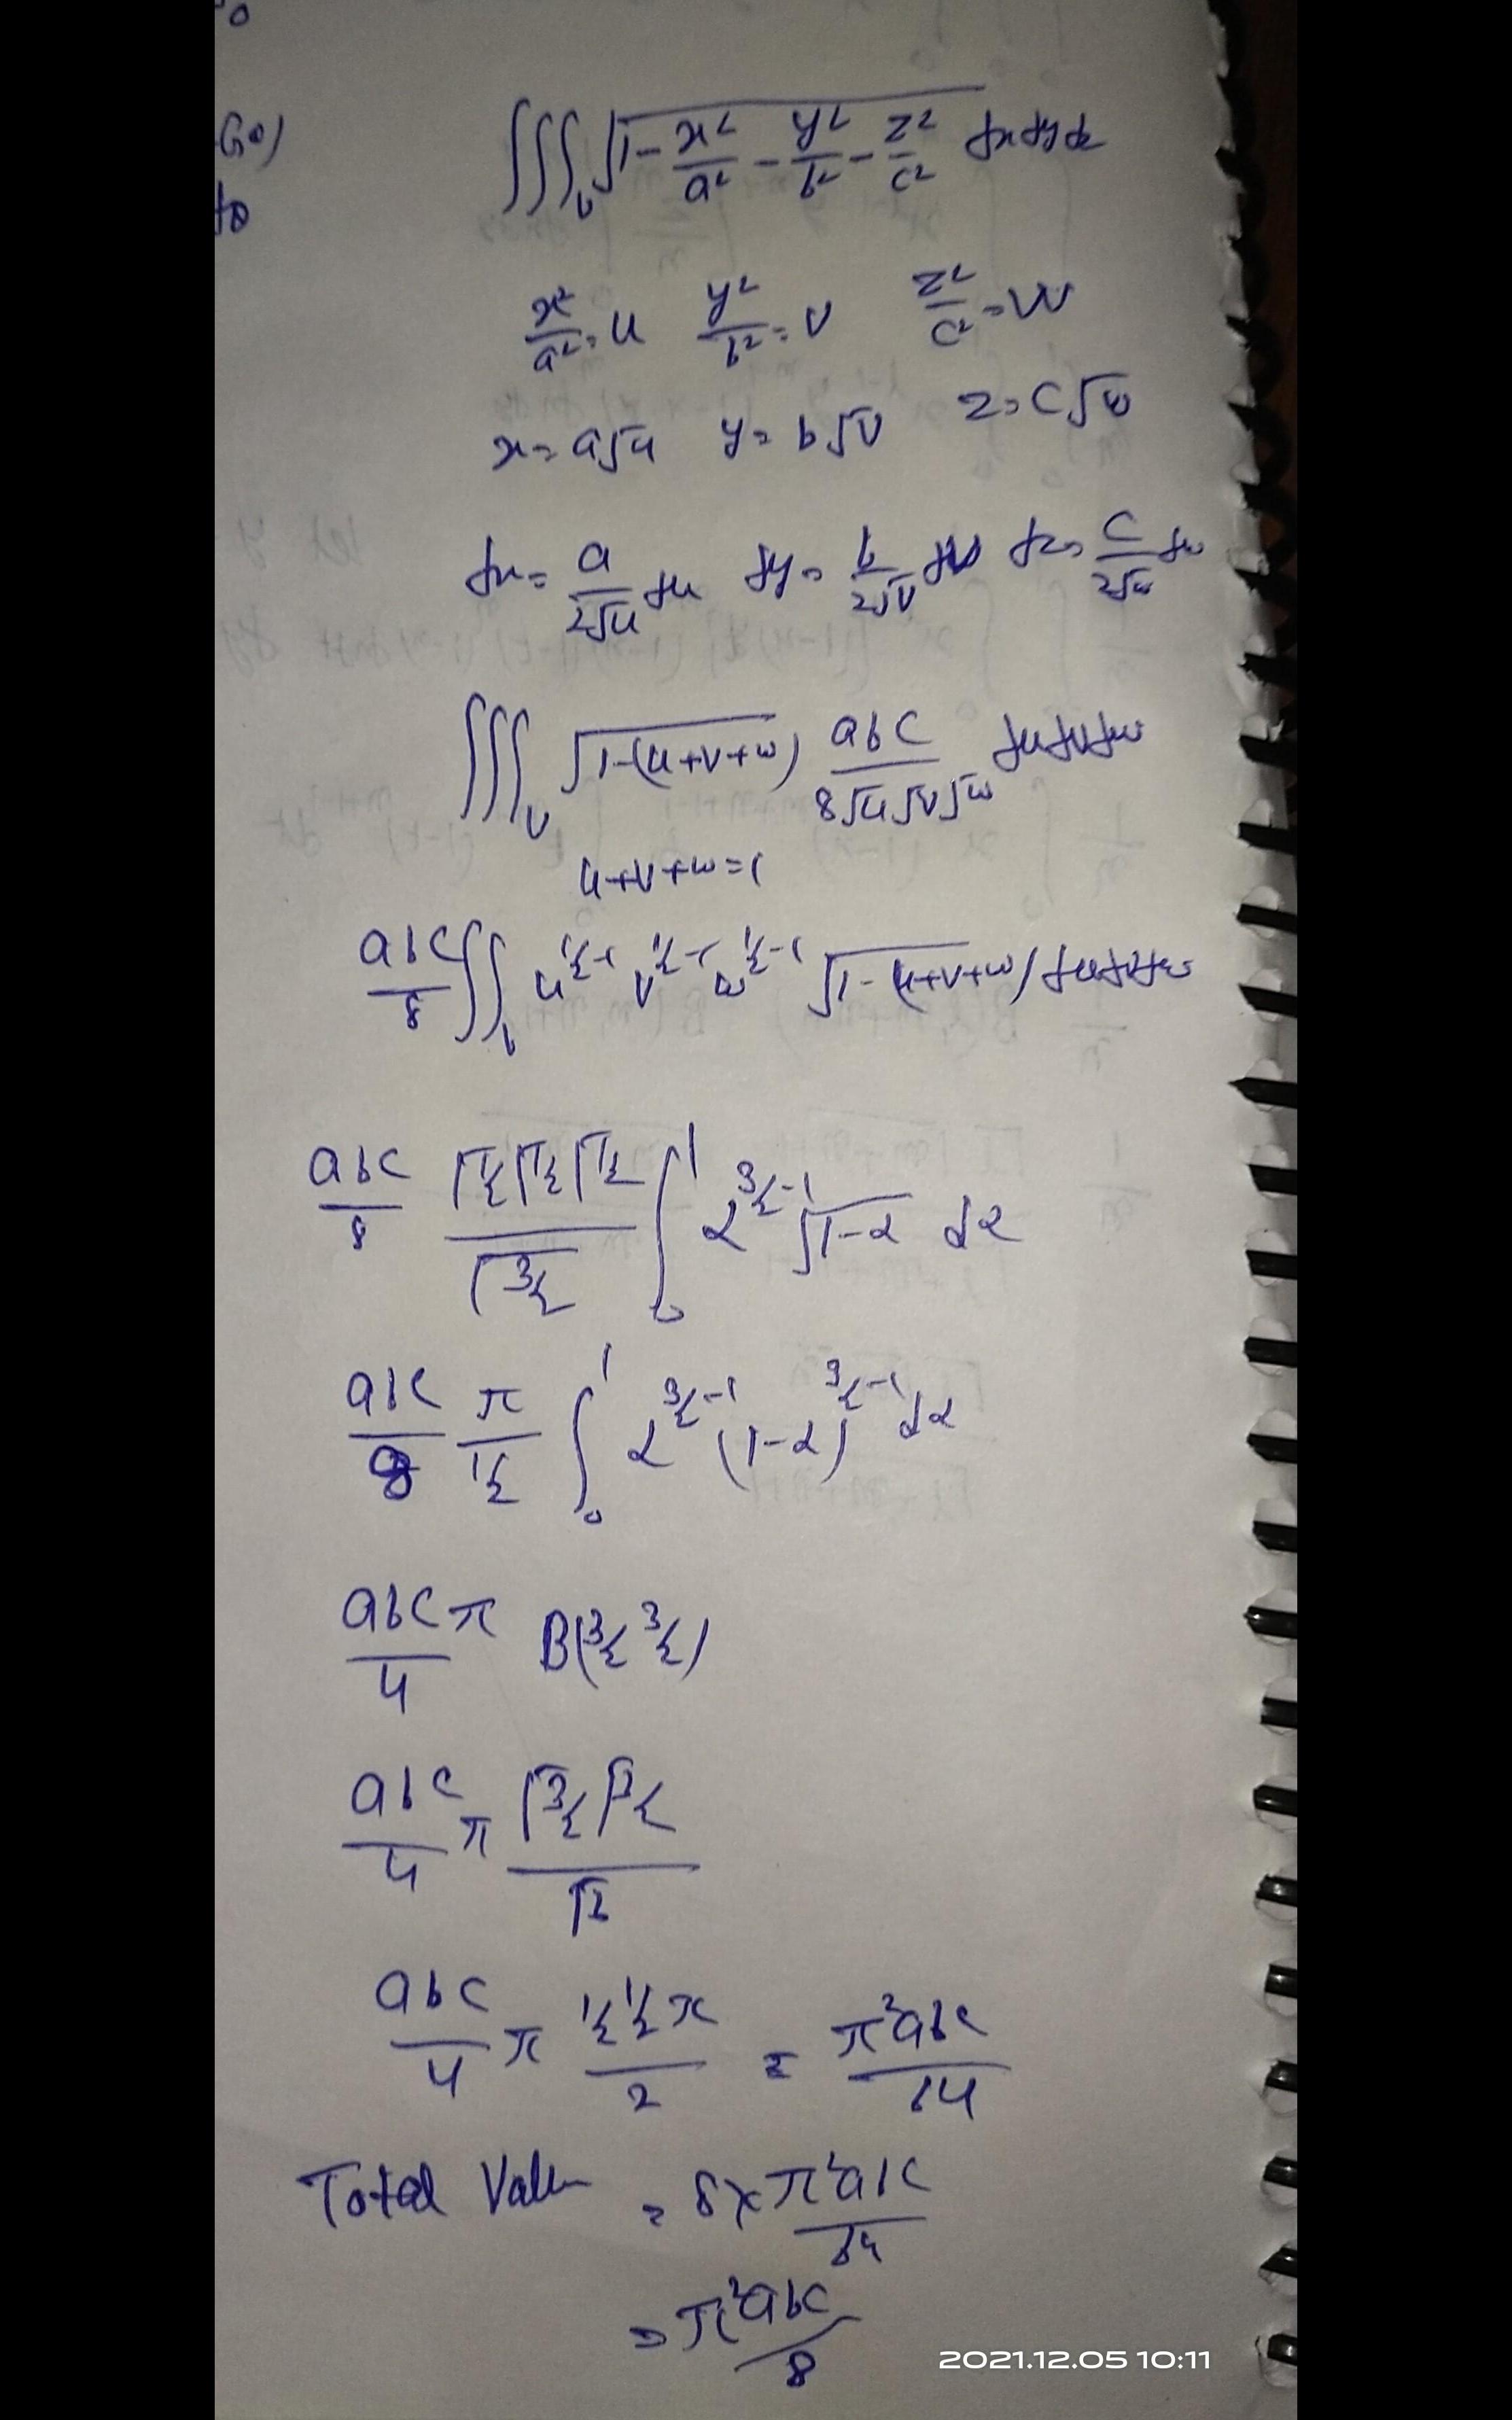 ∫∫∫_V √(1 - x²/a² - y²/b² - z²/c²) dx dy dz
x²/a² = u   y²/b² = v   z²/c² = w
x = a√u   y = b√v   z = c√w
dx = a/(2√u) du   dy = b/(2√v) dv   dz = c/(2√w) dw
∫∫∫_V √(1-(u+v+w)) abc/(8√u√v√w) du dv dw
u+v+w=1
abc/8 ∫∫_V u^(1/2-1) v^(1/2-1) w^(1/2-1) √(1-(u+v+w)) du dv dw
abc/8 (Γ1/2 Γ1/2 Γ1/2)/(Γ3/2) ∫₀¹ α^(3/2-1) √(1-α) dα
abc/8 π/(1/2) ∫₀¹ α^(3/2-1) (1-α)^(3/2-1) dα
abcπ/4 B(3/2 3/2)
abc/4 π (Γ3/2 Γ3/2)/(Γ3)
abc/4 π (1/2 1/2 π)/2 = π²abc/64
Total Value = 8 × π²abc/64
= π²abc/8
2021.12.05 10:11